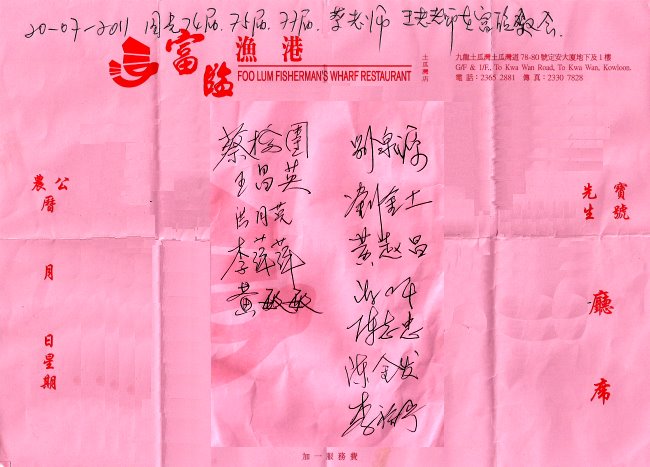 20-07-2011 国光74届.75届.77届.蔡老师 王老师在富临聚会.
富臨漁港
FOO LUM FISHERMAN'S WHARF RESTAURANT
土瓜灣店
九龍土瓜灣土瓜灣道 78-80 號定安大廈地下及 1 樓
G/F & 1/F., To Kwa Wan Road, To Kwa Wan, Kowloon.
電話：2365 2881 傳真：2330 7828
公曆
農
月
日星期
蔡
王昌英
李萍萍
黄敏敏
劉金土
黄趂昌
陈志忠
陈金发
寶號
先生
廳
席
加一服務費